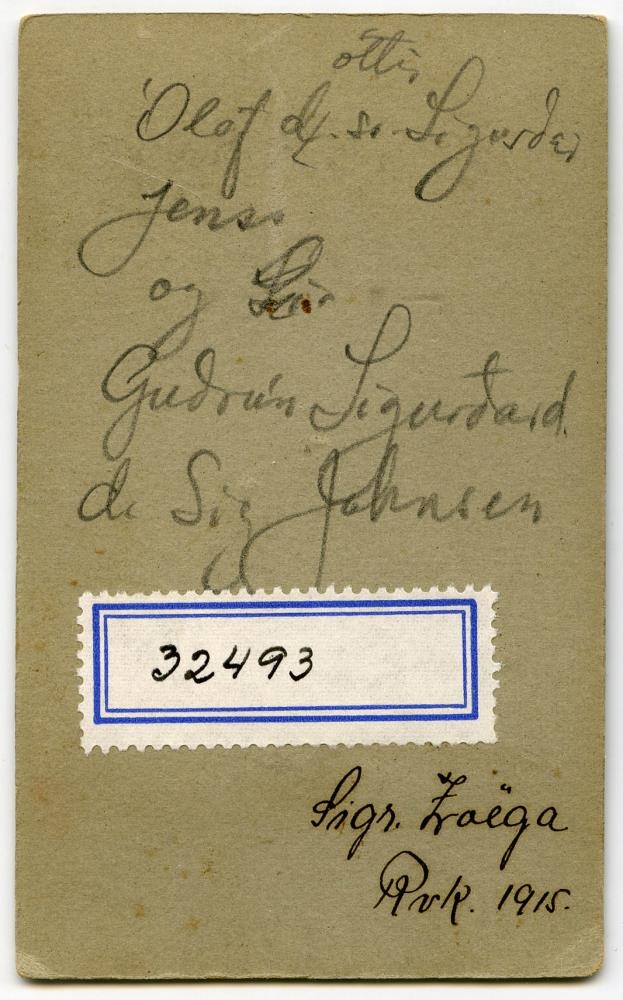 óttir
Ólöf
Jenss
og
Guðrún Sigurðard.
d. Sig Johnsen
32493
Sigr. Zoëga
Rvk. 1915.